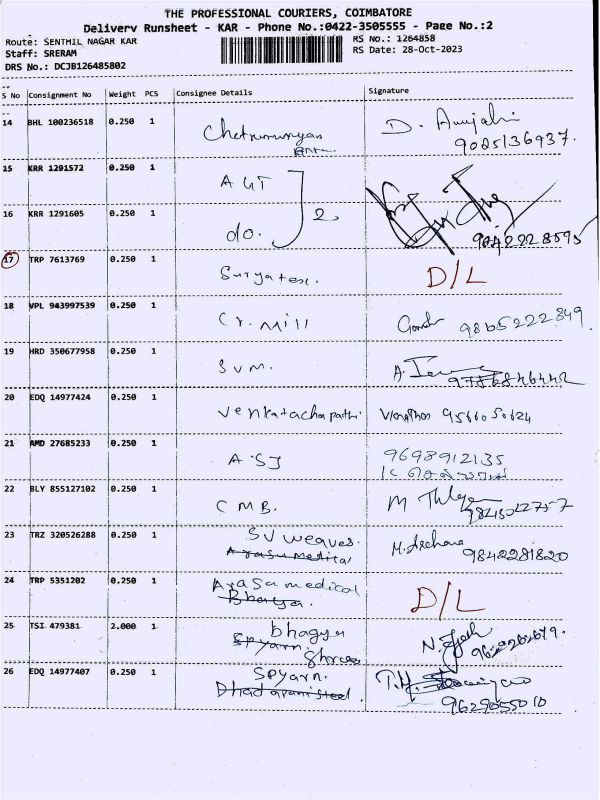 THE PROFESSIONAL COURIERS, COIMBATORE
Delivery Runsheet - KAR - Phone No.:0422-3505555 - Page No.:2
Route: SENTHIL NAGAR KAR
RS No.: 1264858
Staff: SRERAM
RS Date: 28-Oct-2023
DRS No.: DCJB126485802
S No Consignment No Weight PCS Consignee Details Signature
14 BHL 100236518 0.250 1 D. Anujahi
9025136937.
15 KRR 1291572 0.250 1 AGT
16 KRR 1291605 0.250 1 do. 2 9042228595
17 TRP 7613769 0.250 1 Suryatex. D/L
18 VPL 943997539 0.250 1 Cr. Mill 9865222849.
19 HRD 350677958 0.250 1 SVM. A.
20 EDQ 14977424 0.250 1 Venkatachapathi 9566050624
21 AMD 27685233 0.250 1 A SJ 9698912135
22 BLY 855127102 0.250 1 CMB. M
23 TRZ 320526288 0.250 1 SV weaves. M. Archana
Arasu medical 9842281820
24 TRP 5351202 0.250 1 Arasu medical D/L
25 TSI 479381 2.000 1 bhagya N.
SP yarn.
26 EDQ 14977407 0.250 1 SP yarn.
9629055010